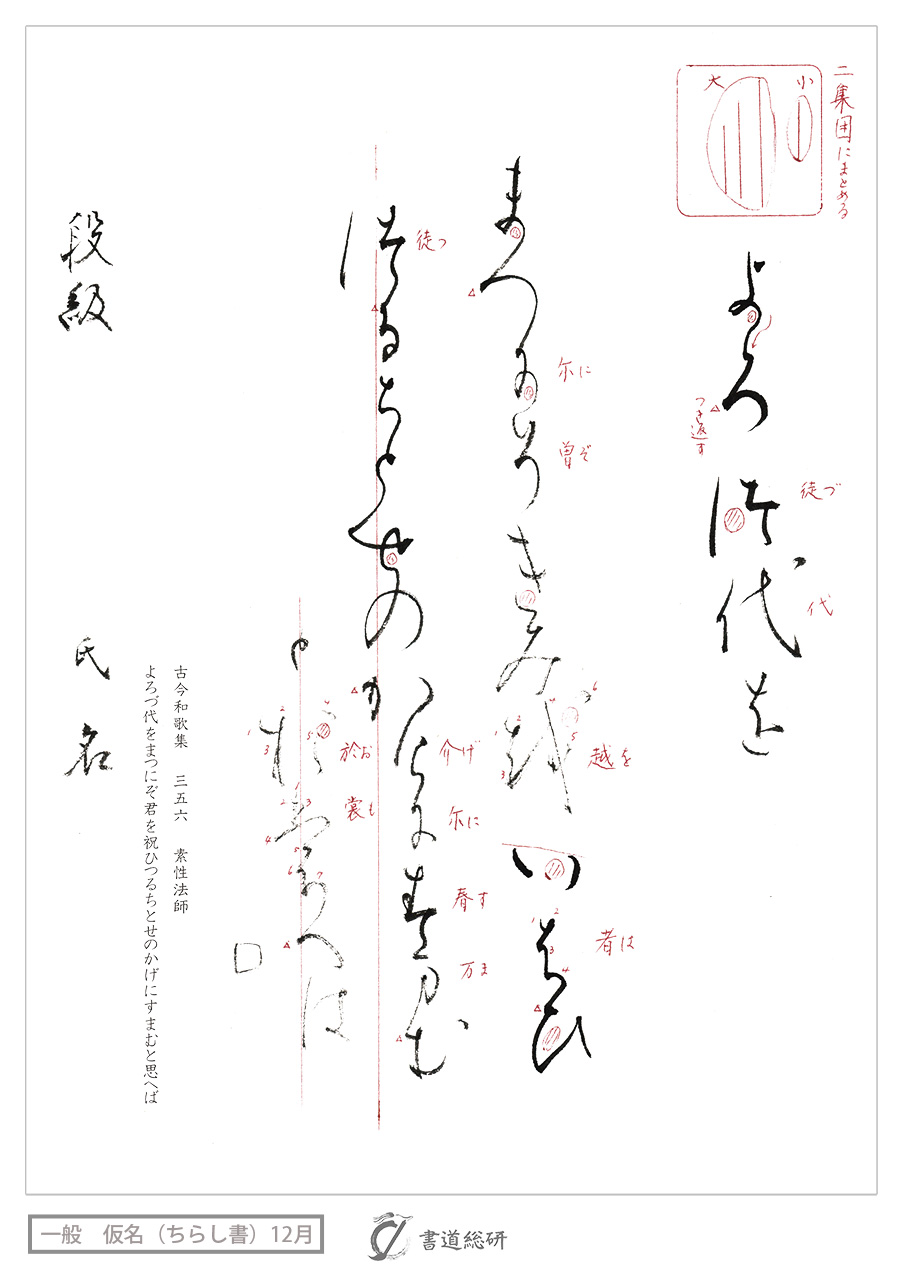 二集団にまとめる
小
大
よろ徒代を
徒づ
代
つき返す
まつ尓曽きみ越い者ひ
尓に
曽ぞ
越を
者は
徒るちとせのか介尓春万む
徒つ
介げ
尓に
春す
万ま
と於裳へは
於お
裳も
古今和歌集 三五六 素性法師
よろづ代をまつにぞ君を祝ひつるちとせのかげにすまむと思へば
段級 氏名
一般 仮名（ちらし書）12月
書道総研